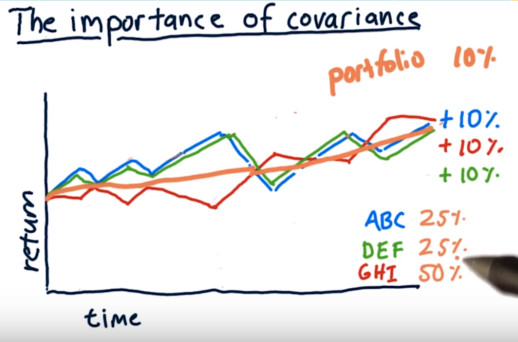 The importance of covariance
portfolio 10%
+10%
+10%
+10%
return
ABC 25%
DEF 25%
GHI 50%
time